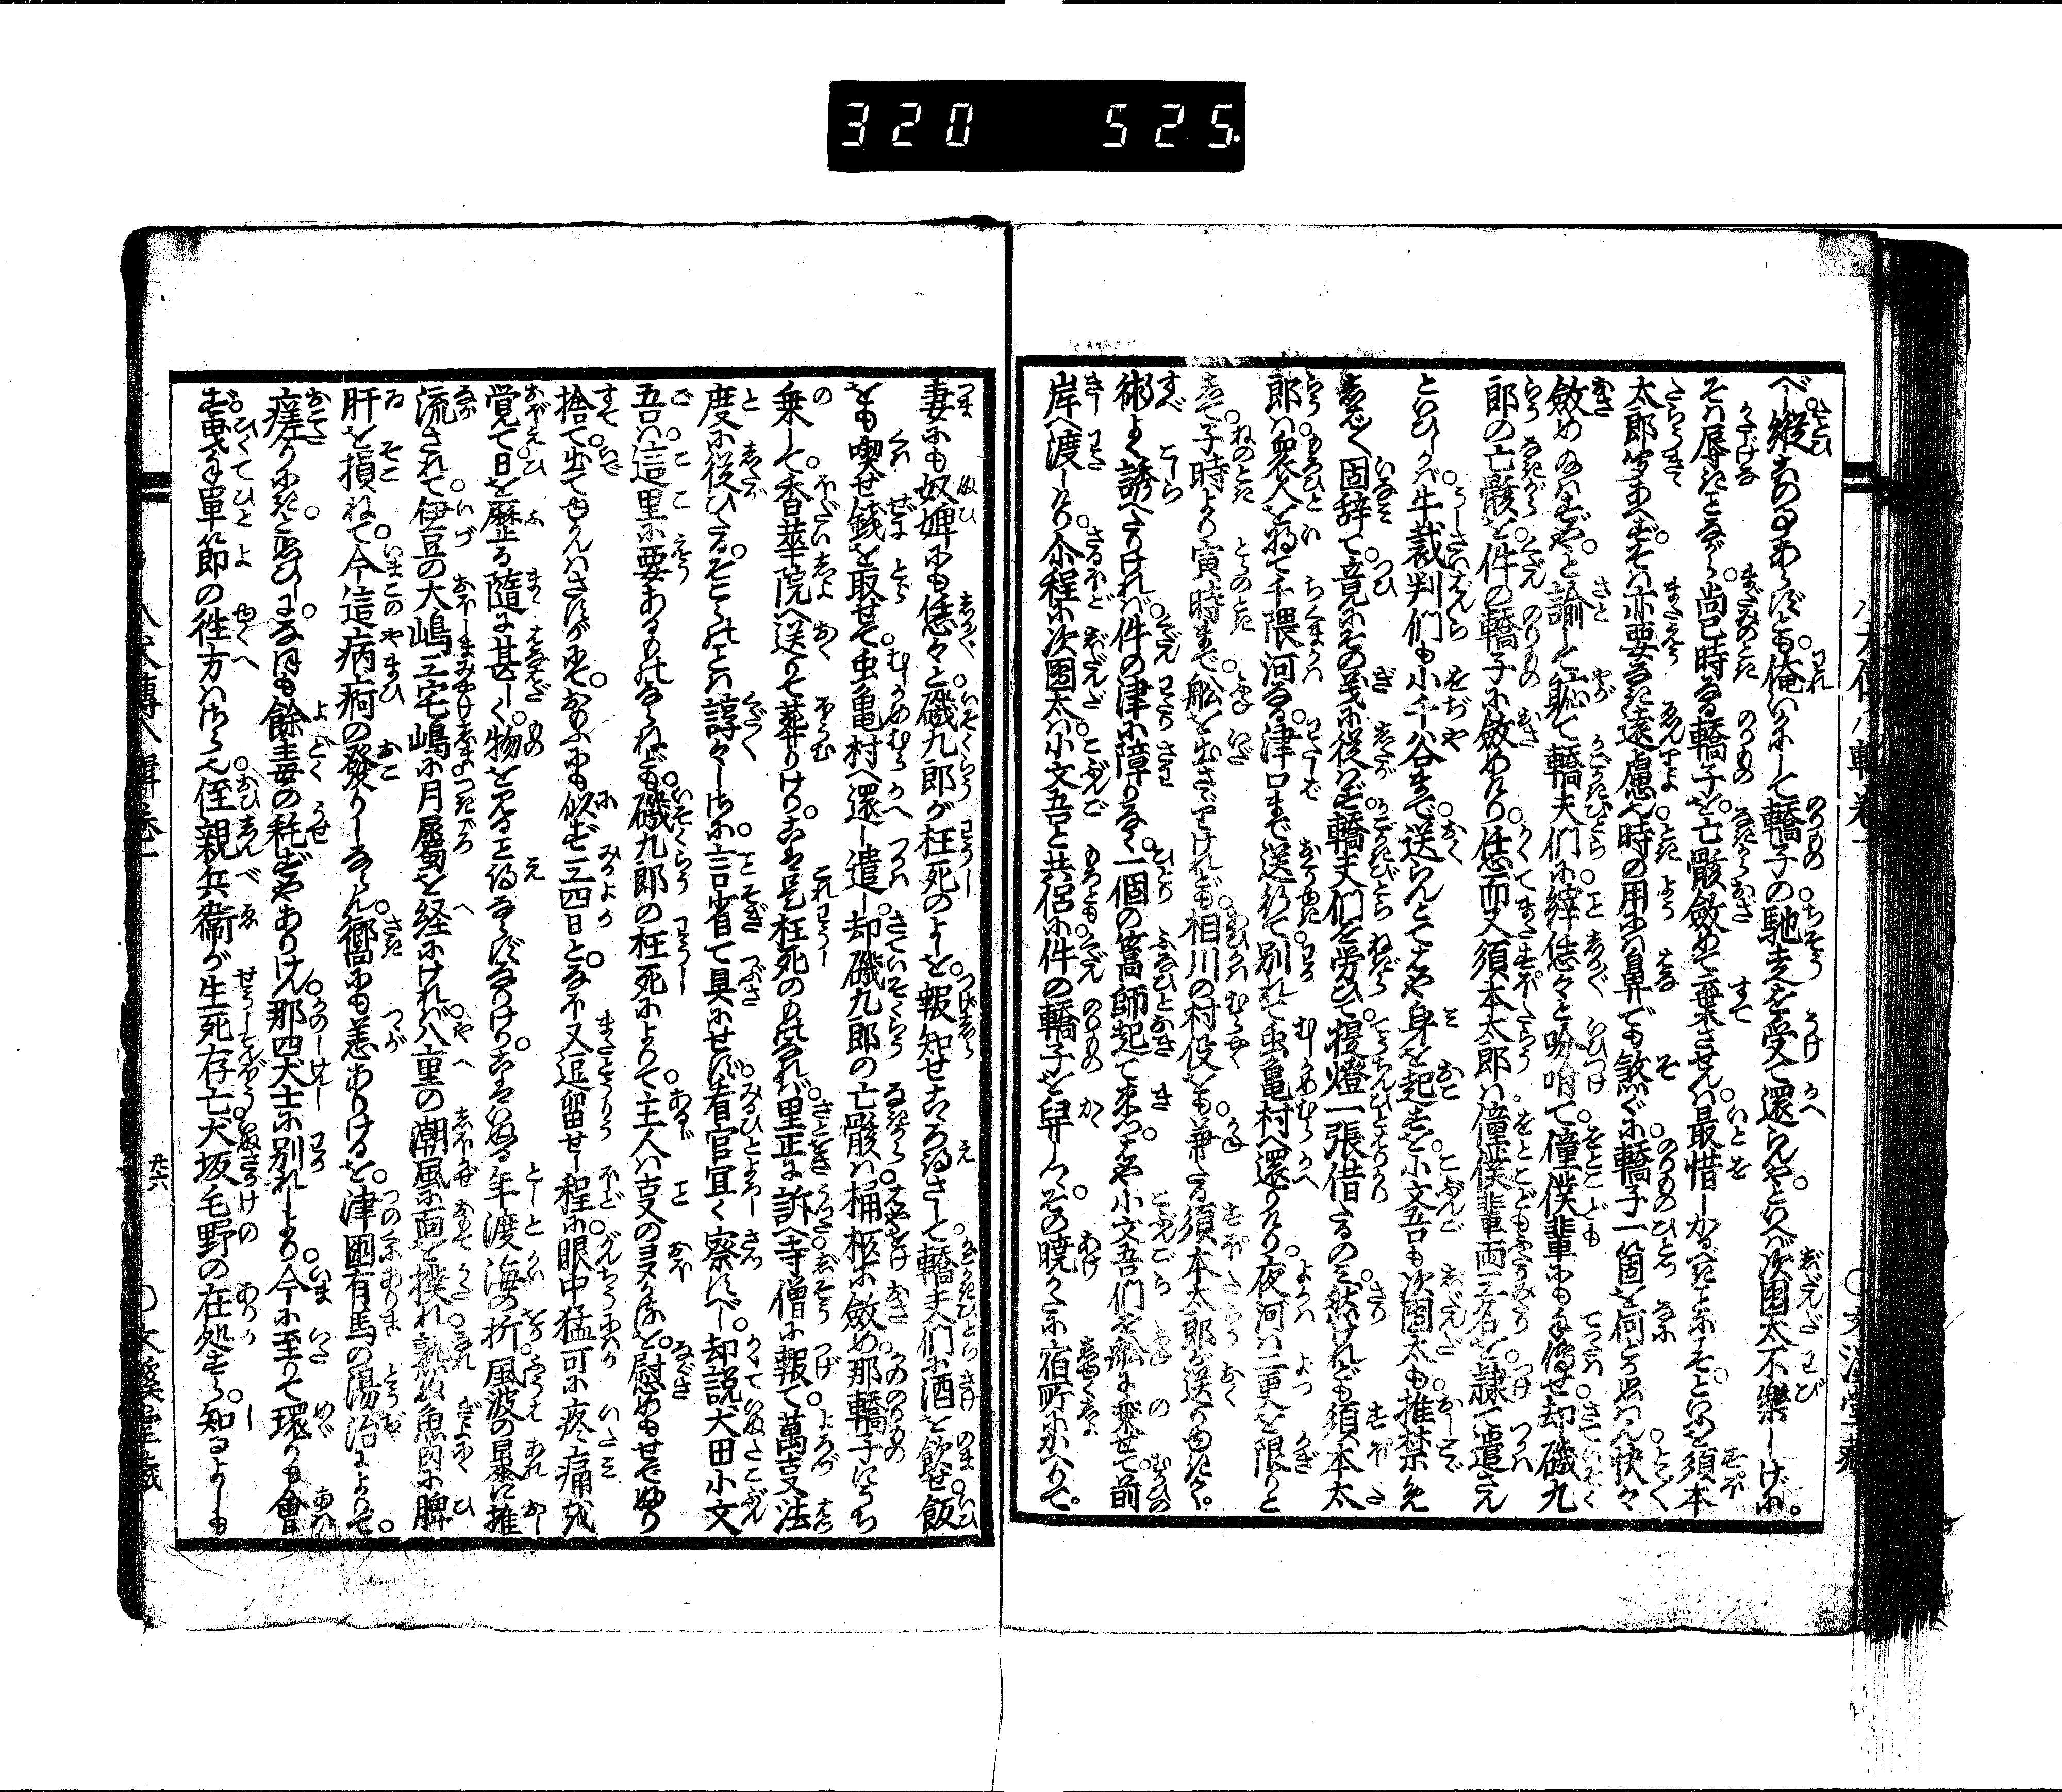 320 525.
べし縦そのことあらずとも俺いかにして轎子の馳走を受て還らんやといへば次団太不樂しげに
そは辱きことながら尚已時なる轎子を亡骸斂めて棄させんは最惜しかるべきことにこそといふを須本
太郎笑あへずそは亦要なき遠慮へ時の用には鼻でも煞ぐに轎子一箇を何とか思はん快々
斂めぬはずやと諭して軈て轎夫們に縡恁々と吩咐て僮僕輩にも手傳せ却磯九
郎の亡骸を件の轎子に斂めたり恁而又須本太郎は僮僕輩両三名を隷て遣さん
といひしかば牛裁判們も小千谷まで送らんとてはや身を起すを小文吾も次団太も推禁め
しば〳〵固辞て竟にその義に従はず轎夫們を労ひて提燈一張借たるのみ然けれども須本太
郎は衆人を将て千隈河なる津口まで送りて別れて虫亀村へ還りけり夜河は二更を限りと
して子時より寅時まで舩を出さゞりけれども相川の村役をも兼たる須本太郎が送りゆきて
術よく誘へたりければ件の津に障りなく一個の篙師起て来つはや小文吾們を舩に乗せて前
岸へ渡しけり尒程に次団太は小文吾と共侶に件の轎子を舁して〳〵その暁かたに宿所にかへりて
妻にも奴婢にも恁々と磯九郎が枉死のよしを報知せこゝろ得さして轎夫們に酒を飲せ飯
をも喫せ銭を取せて虫亀村へ還し遣し却磯九郎の亡骸は桶柩に斂め那轎子にうち
乗して香華院へ送りて葬りけりこは是枉死のものなれば里正に訴へ寺僧に報て萬支法
度に従ひたるそこらのことは諄々しきに言省て具にせず看官宜く察すべし却説犬田小文
吾は這里に要あるものならねども磯九郎の枉死によりて主人は支のヨスガなきを慰めもせでゆり
捨て出てゆかんはさすがにておもふにも似ず三四日となふ又逗留せし程に眼中猛可に疼痛を
覚て日を歴る隨に甚しく物をみることを得ならずなりけりこはいぬる年渡海の折風波の暴に推
流されて伊豆の大嶋三宅嶋に月属を経にければ八重の潮風に面を撲れ熟ぬ魚肉に脾
肝を損ねて今這病痾の發りしならん嚮にも恙ありけるを津國有馬の湯治によりて
瘥りにきと思ひしはなほも餘毒の耗ずやありけん那四犬士に別れしより今に至りて環りも會
ず曳手單節の往方はさらで侄親兵衛が生死存亡犬坂毛野の在処すら知るよしも
八犬傳八輯巻一
廿六
文溪堂藏